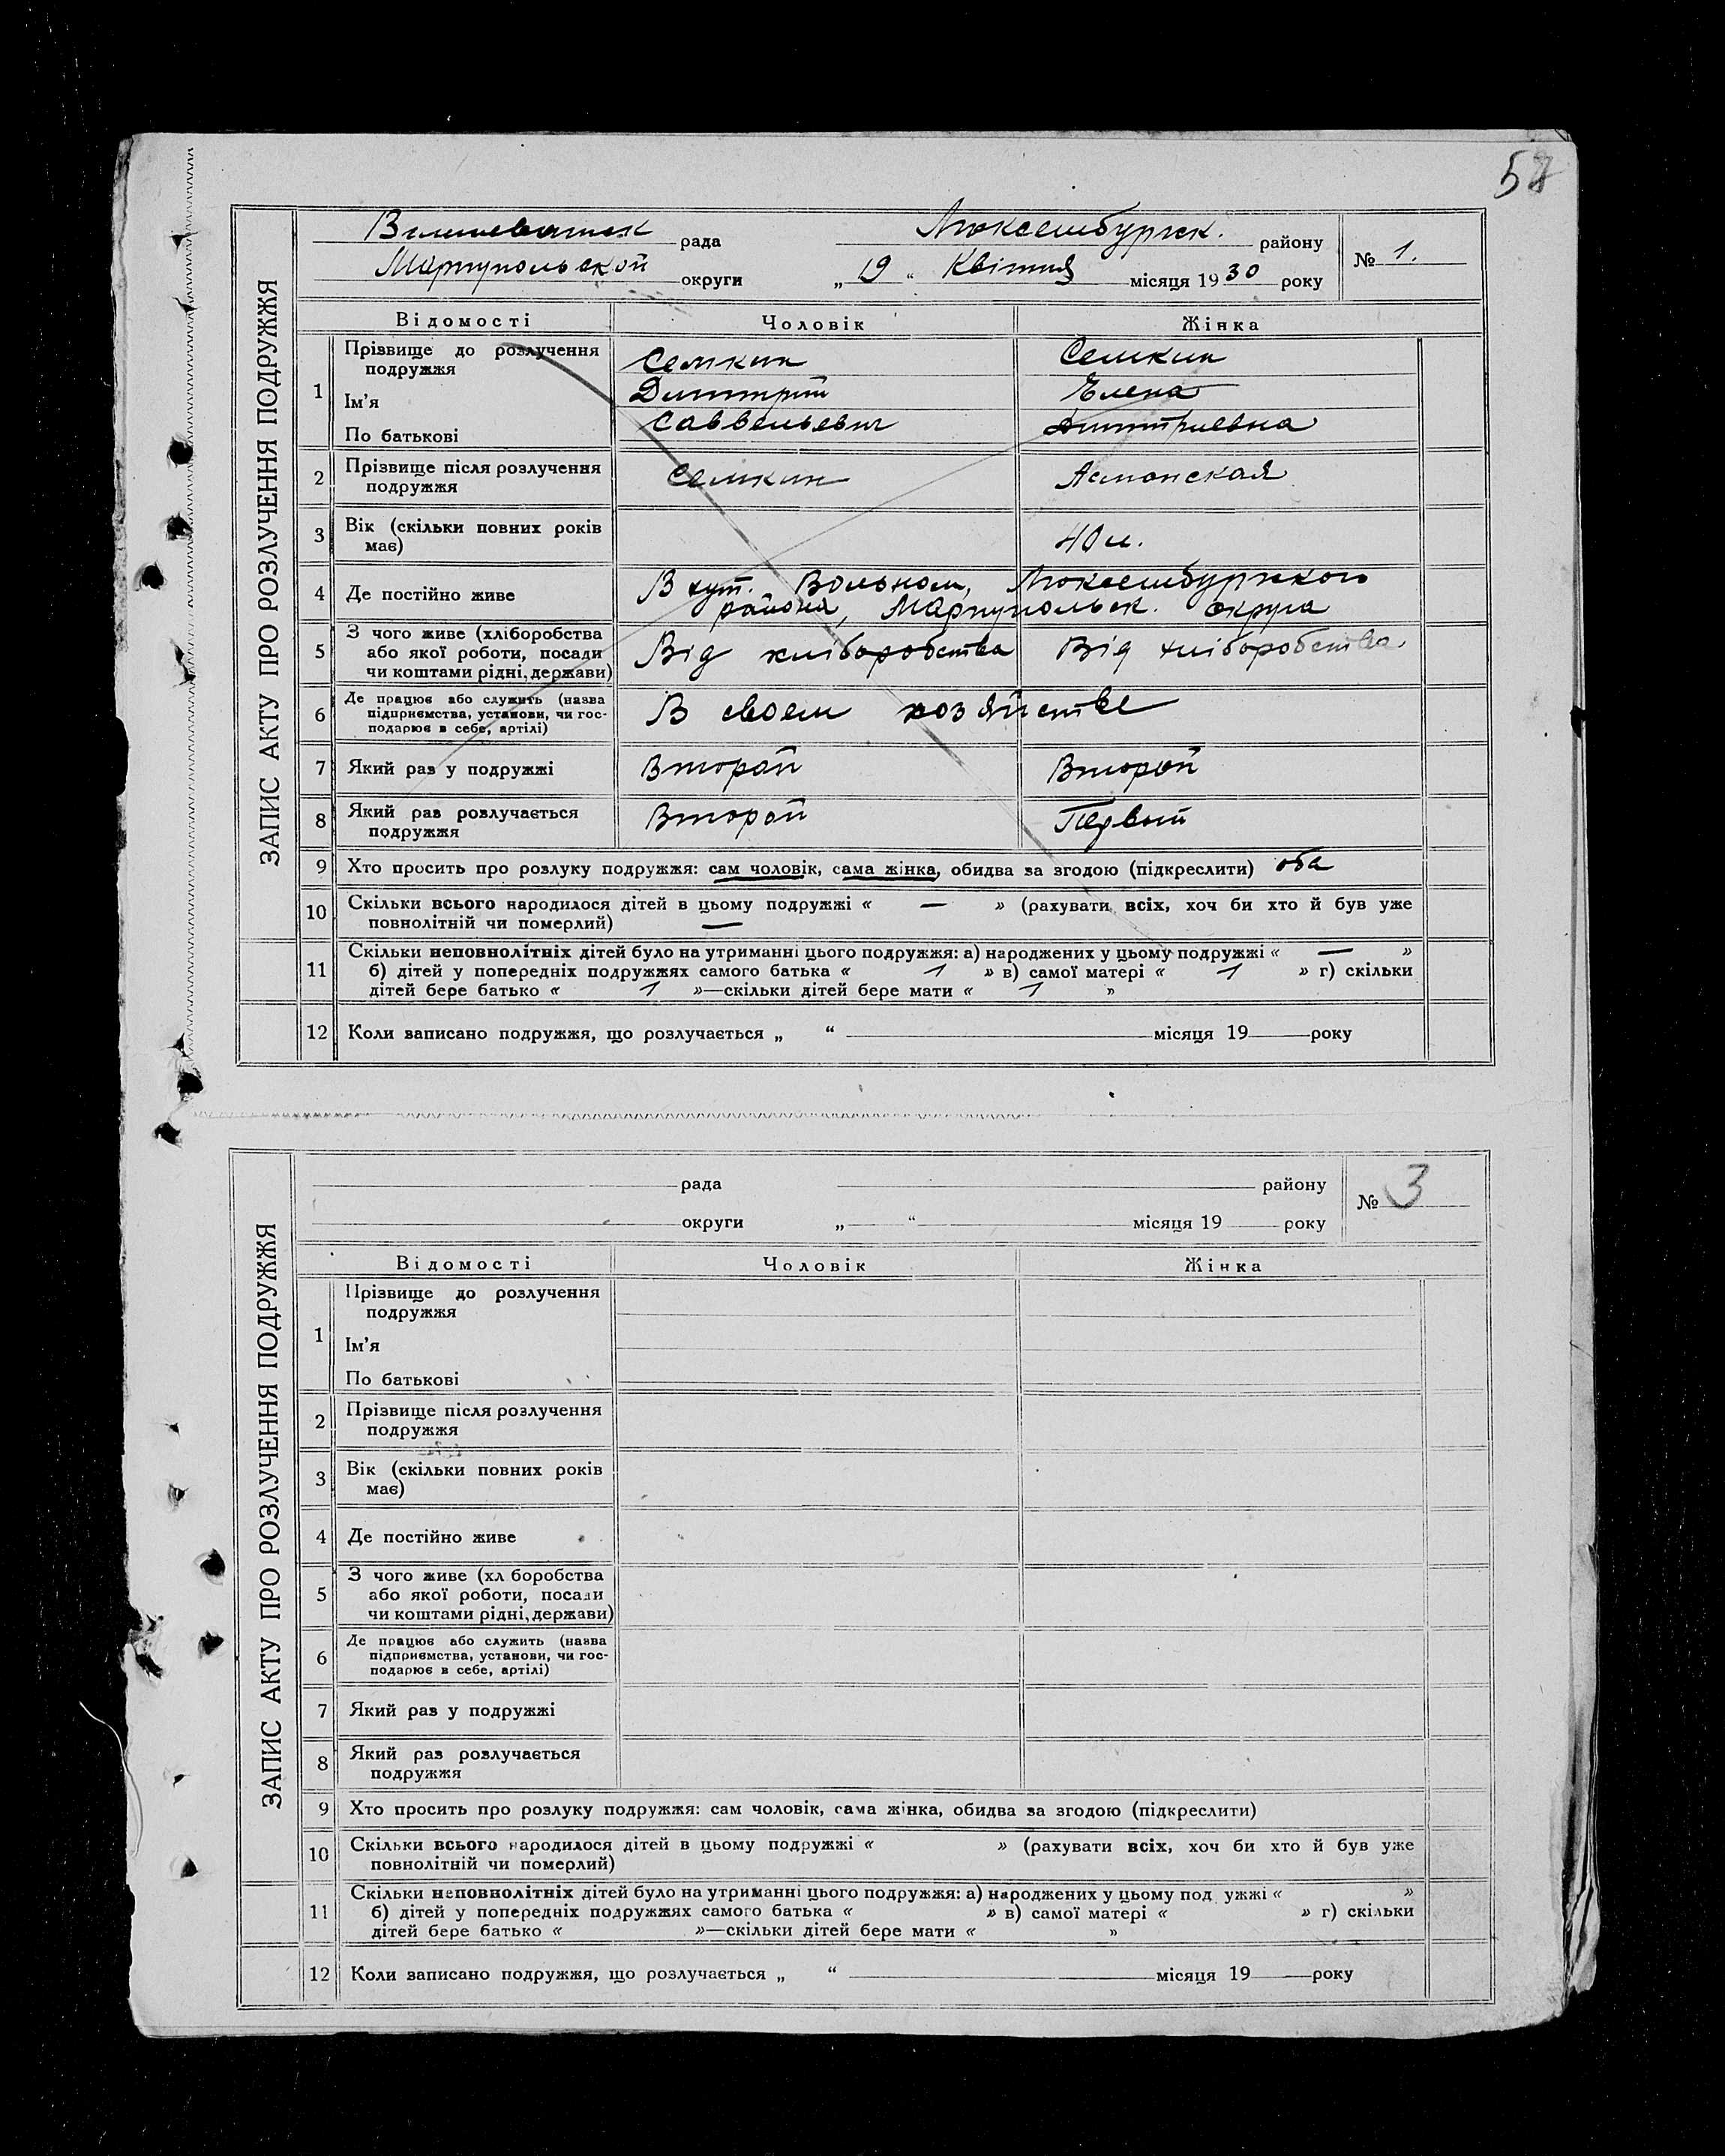 ЗАПИС АКТУ ПРО РОЗЛУЧЕННЯ ПОДРУЖЖЯ
рада Люксембургск. району № 1.
Мариупольской округи „ 19 “ Квітня місяця 1930 року
Відомості Чоловік Жінка
1 Прізвище до розлучення Семкин Семкин
подружжя
Ім'я Дмитрий Елена
По батькові Саввельевич Дмитриевна
2 Прізвище після розлучення Семкин
подружжя
3 Вік (скільки повних років 40 л.
має)
4 Де постійно живе В хут. Вольном, Люксембургского
района, Мариупольск. округа
5 З чого живе (хліборобства
або якої роботи, посади Від хліборобства Від хліборобства.
чи коштами рідні, держави)
6 Де працює або служить (назва
підприємства, установи, чи гос- В своем хозяйстве
подарює в себе, артілі)
7 Який раз у подружжі Второй Второй
8 Який раз розлучається Второй Первый
подружжя
9 Хто просить про розлуку подружжя: сам чоловік, сама жінка, обидва за згодою (підкреслити) оба
10 Скільки всього народилося дітей в цьому подружжі « — » (рахувати всіх, хоч би хто й був уже
повнолітній чи померлий) —
11 Скільки неповнолітніх дітей було на утриманні цього подружжя: а) народжених у цьому подружжі « — »
б) дітей у попередніх подружжях самого батька « 1 » в) самої матері « 1 » г) скільки
дітей бере батько « 1 »—скільки дітей бере мати « 1 »
12 Коли записано подружжя, що розлучається „ “ місяця 19 року
ЗАПИС АКТУ ПРО РОЗЛУЧЕННЯ ПОДРУЖЖЯ
рада району № 3
округи „ “ місяця 19 року
Відомості Чоловік Жінка
1 Прізвище до розлучення
подружжя
Ім'я
По батькові
2 Прізвище після розлучення
подружжя
3 Вік (скільки повних років
має)
4 Де постійно живе
5 З чого живе (хл боробства
або якої роботи, посади
чи коштами рідні, держави)
6 Де працює або служить (назва
підприємства, установи, чи гос-
подарює в себе, артілі)
7 Який раз у подружжі
8 Який раз розлучається
подружжя
9 Хто просить про розлуку подружжя: сам чоловік, сама жінка, обидва за згодою (підкреслити)
10 Скільки всього народилося дітей в цьому подружжі « » (рахувати всіх, хоч би хто й був уже
повнолітній чи померлий)
11 Скільки неповнолітніх дітей було на утриманні цього подружжя: а) народжених у цьому под ужжі « »
б) дітей у попередніх подружжях самого батька « » в) самої матері « » г) скільки
дітей бере батько « »—скільки дітей бере мати « »
12 Коли записано подружжя, що розлучається „ “ місяця 19 року